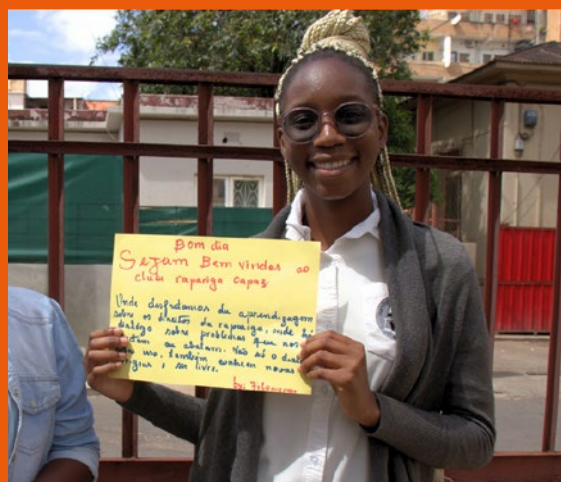 Bom dia
Sejam Bem vindas ao
clube rapariga capaz
Onde desfrutamos da aprendizagem
sobre os direitos da rapariga, onde há
diálogo sobre problemas que nos
ou abalam. Não só o
isso, também
ser livre.
by